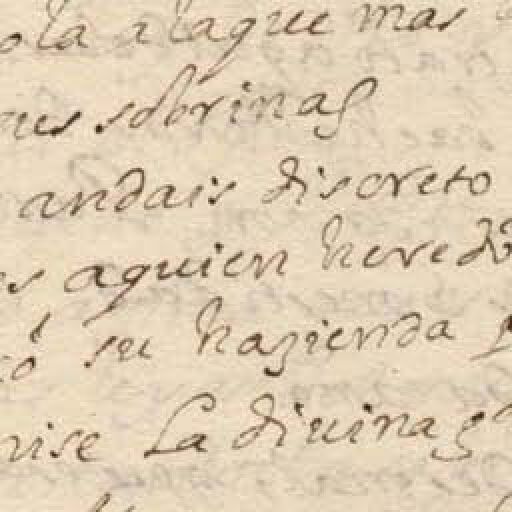 ola alaque mas
sus sobrinas
andais discreto
es aquien heredó
có su hazienda
nise La diuina g